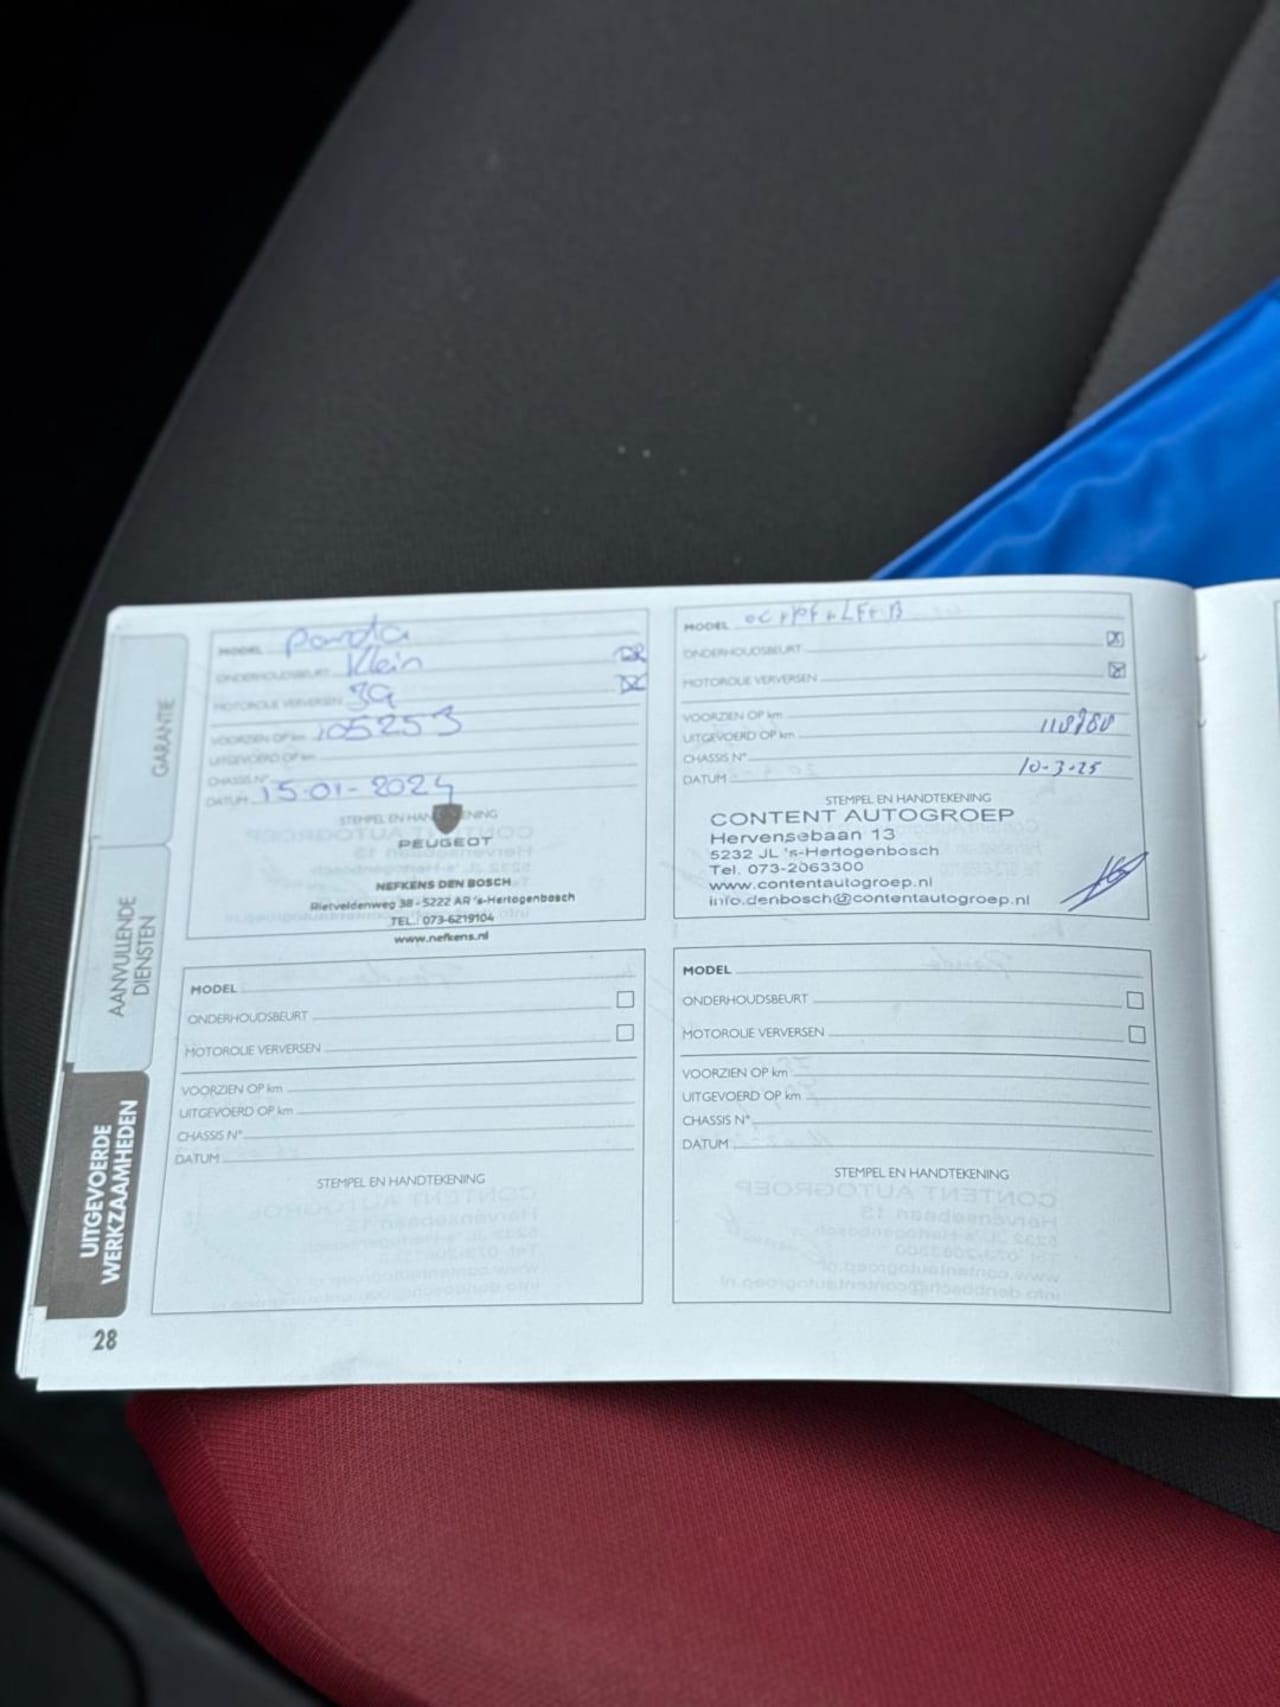 GARANTIE
AANVULLENDE
DIENSTEN
UITGEVOERDE
WERKZAAMHEDEN
28
MODEL Panda
ONDERHOUDSBEURT Klein
MOTOROLIE VERVERSEN
VOORZIEN OP km 105253
UITGEVOERD OP km
CHASSIS N°
DATUM 15-01-2024
STEMPEL EN HANDTEKENING
PEUGEOT
NEFKENS DEN BOSCH
Rietveldenweg 38 - 5222 AR 's-Hertogenbosch
TEL.: 073-6219104
www.nefkens.nl
MODEL
ONDERHOUDSBEURT
MOTOROLIE VERVERSEN
VOORZIEN OP km
UITGEVOERD OP km
CHASSIS N°
DATUM 10-3-25
STEMPEL EN HANDTEKENING
CONTENT AUTOGROEP
Hervensebaan 13
5232 JL 's-Hertogenbosch
Tel. 073-2063300
www.contentautogroep.nl
info.denbosch@contentautogroep.nl
MODEL
ONDERHOUDSBEURT
MOTOROLIE VERVERSEN
VOORZIEN OP km
UITGEVOERD OP km
CHASSIS N°
DATUM
STEMPEL EN HANDTEKENING
MODEL
ONDERHOUDSBEURT
MOTOROLIE VERVERSEN
VOORZIEN OP km
UITGEVOERD OP km
CHASSIS N°
DATUM
STEMPEL EN HANDTEKENING